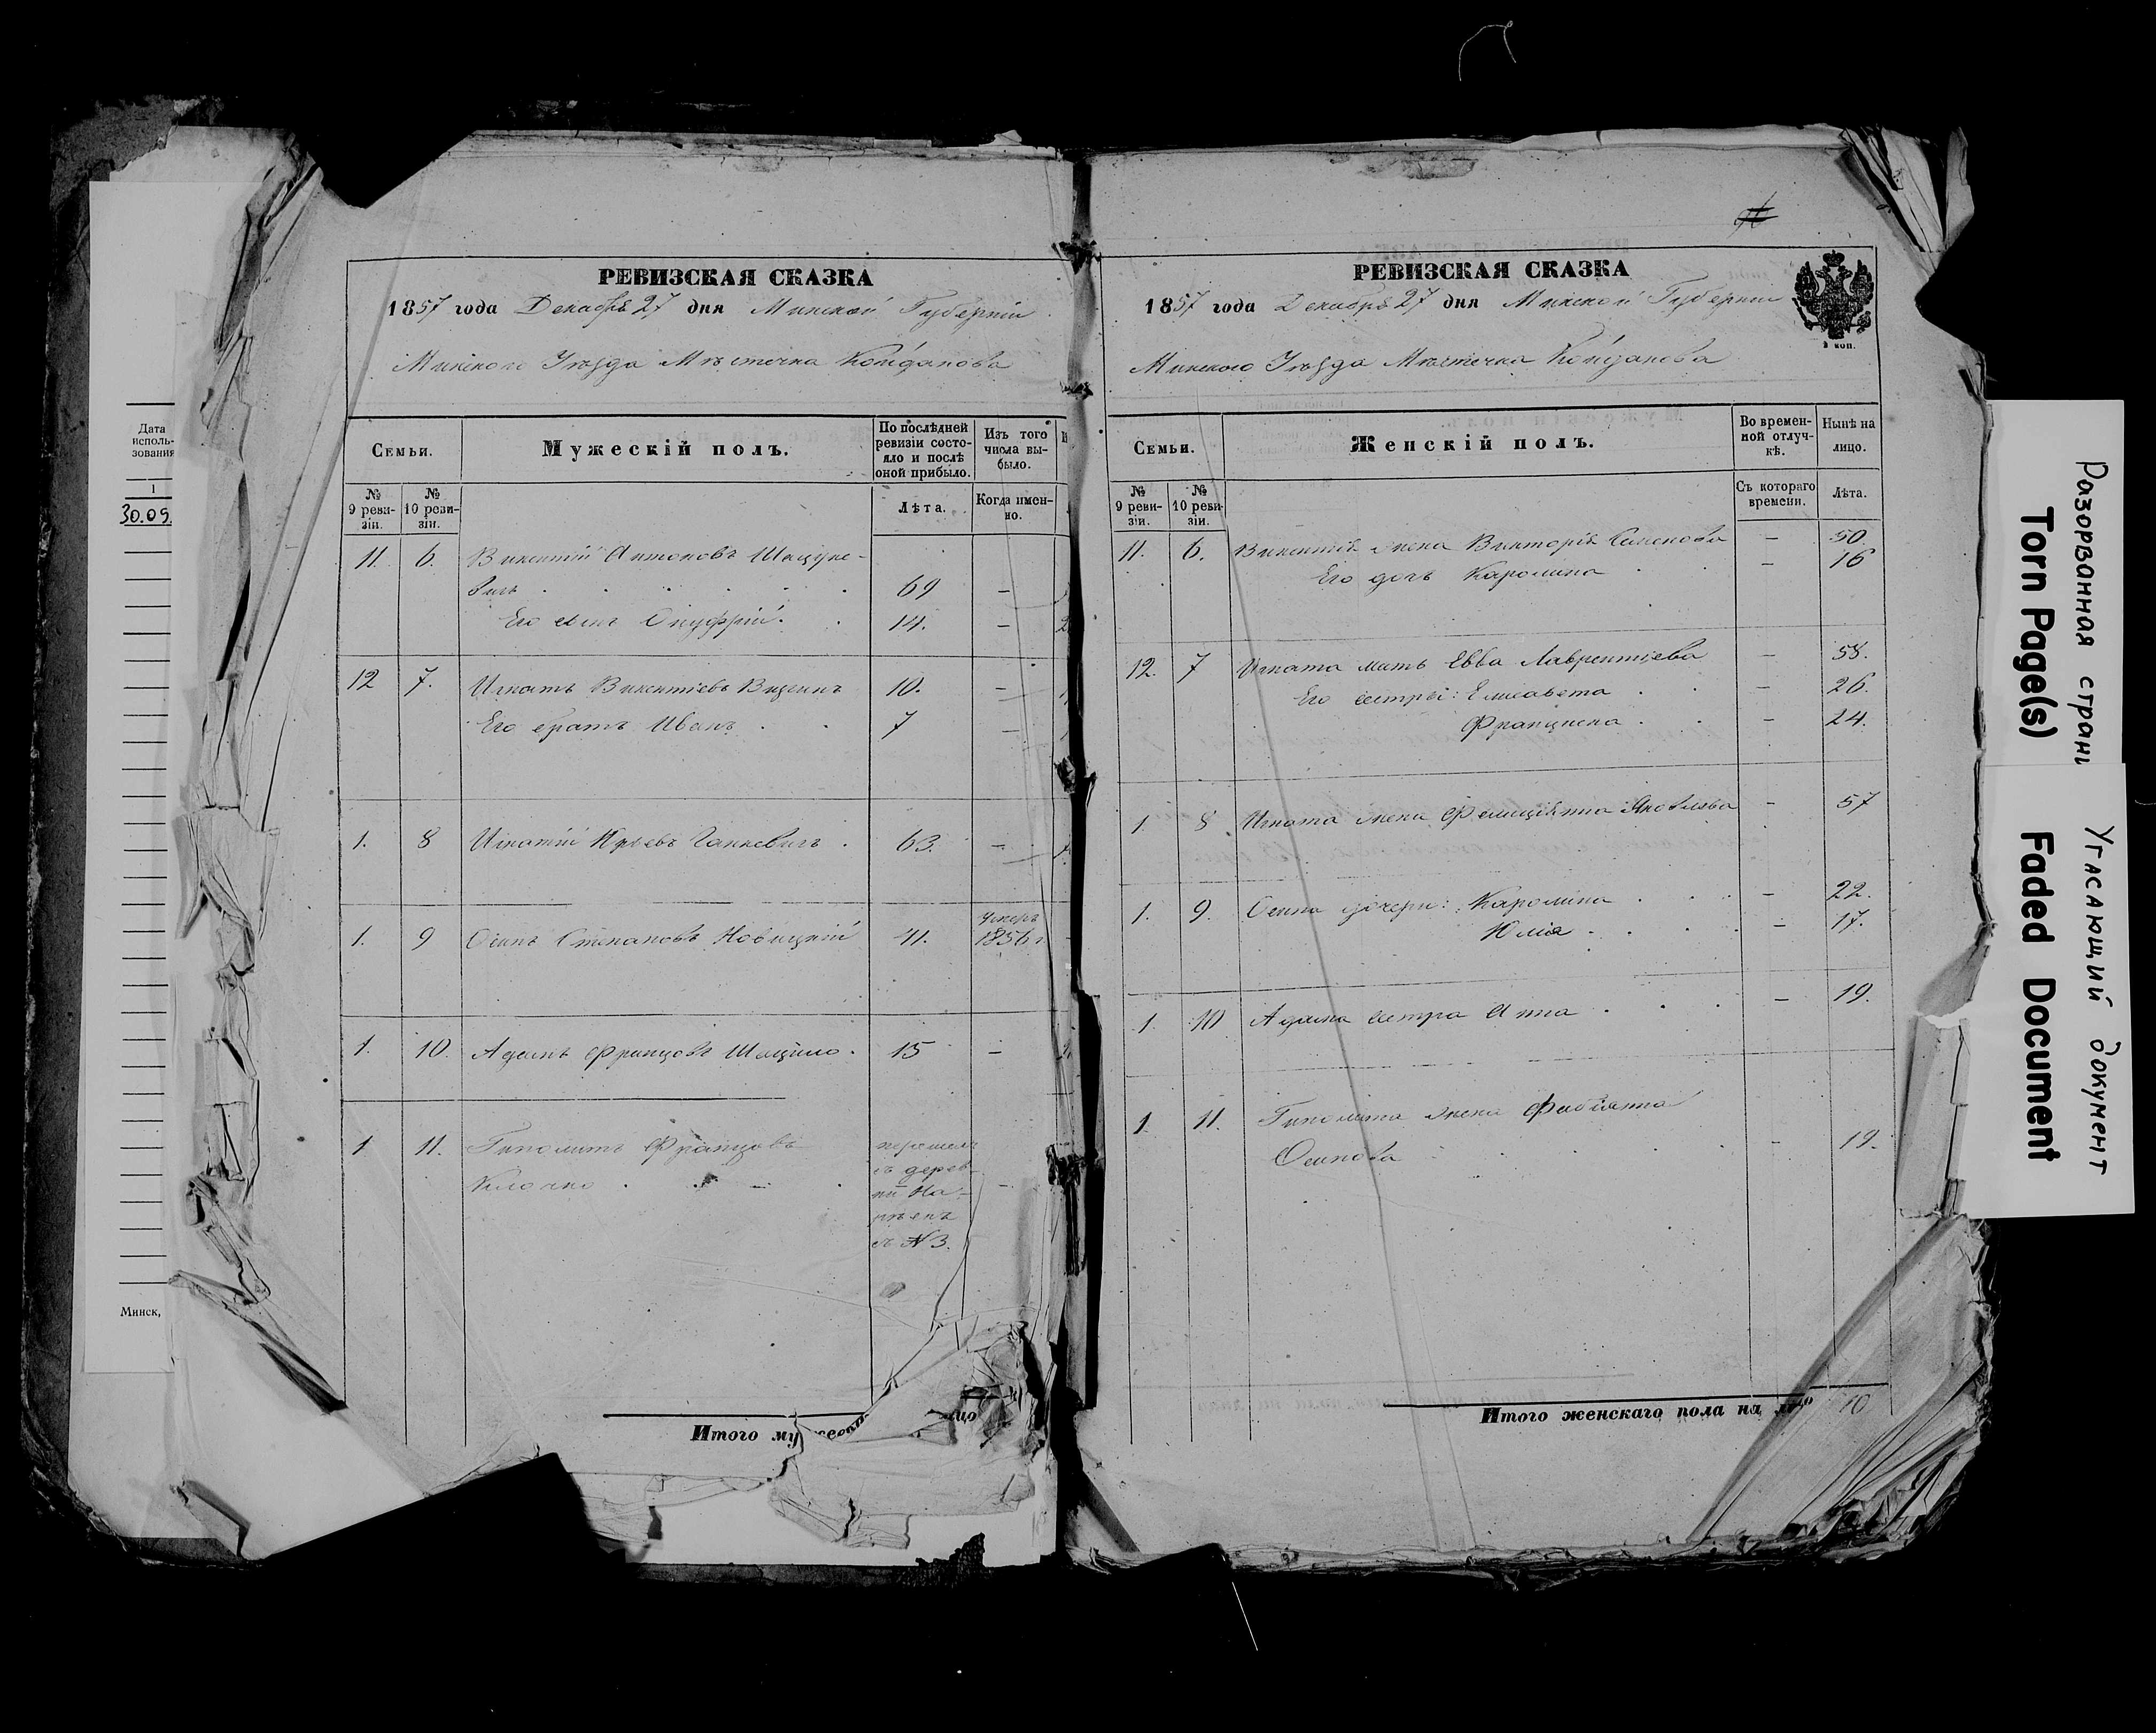 РЕВИЗСКАЯ СКАЗКА
1857 года Декабря 27 дня Минской Губерніи
Минского Уѣзда Мѣстечка Койданова
Семьи.
Мужескій полъ.
По послѣдней ревизіи состояло и послѣ оной прибыло.
Изъ того числа выбыло.
№ 9 ревизіи.
№ 10 ревизіи.
Лѣта.
Когда именно.
11. 6. Викентій Антоновъ Шацуке-
вичъ 69 –
Его сынъ Онуфрій 14. –
12 7. Игнатъ Викентіевъ 10. –
Его братъ Иванъ 7 –
1. 8 Игнатій Юрьевъ 63. –
1. 9 Осипъ Степановъ Новицкій 41. умеръ 1856 г
1. 10. Адамъ Францовъ Шацило 15 –
1 11. Гиполитъ Францовъ
перешелъ
съ дерев-
ни На-
съ № 3.
Итого му
РЕВИЗСКАЯ СКАЗКА
1857 года Декабря 27 дня Минской Губерніи
2 коп.
Минского Уѣзда Мѣстечка Койданова
Семьи.
Женскій полъ.
Во временной отлучкѣ.
Нынѣ на лицо.
№ 9 ревизіи.
№ 10 ревизіи.
Съ котораго времени.
Лѣта.
11. 6. Викентія жена Викторія Семенова – 50.
Его дочь Каролина – 16
12. 7 Игната мать Евва Лаврентіева –
Его сестры: Елисавета – 26.
Франциска – 24.
1 8 Игната жена Фелиціянна Яковлева – 57
1. 9. Осипа дочери: Каролина – 22.
Юлія – 17.
1. 10 Адама сестра Анна – 19.
1 11. Гиполита жена Фабіянна
Осипова – 19.
Итого женскаго пола на лицо 10
Дата
исполь-
зования
1
30.09.
Минск,
Разорванная страни
Torn Page(s)
Угасающий документ
Faded Document